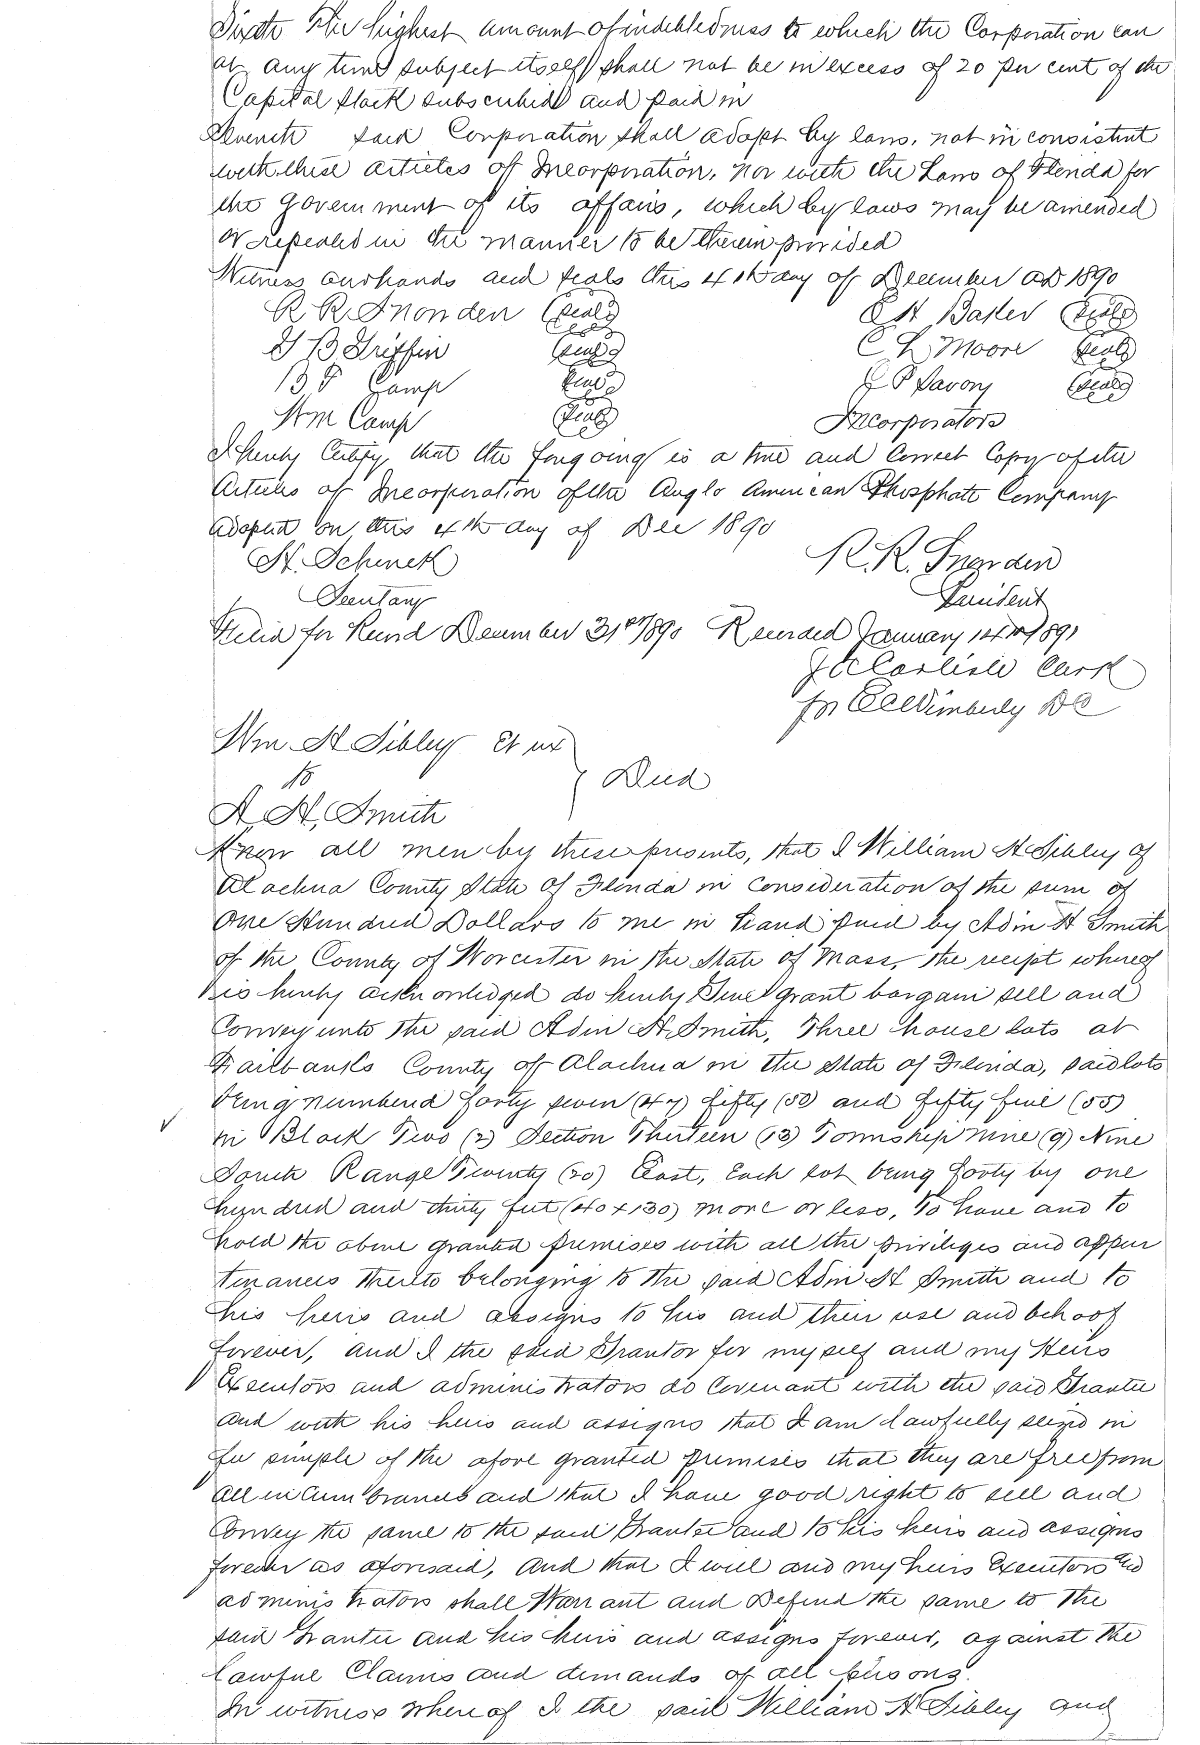 Sixth The highest amount of indebtedness to which the Corporation can
at any time subject itself shall not be in excess of 20 per cent of the
Capital Stock subscribed and paid in
Seventh said Corporation shall adopt by laws, not inconsistent
with these articles of Incorporation, nor with the Laws of Florida for
the government of its affairs, which by laws may be amended
or repealed in the manner to be therein provided
Witness our hands and seals this 4th day of December AD 1890
R R Snowden (seal) E H Baker (seal)
J B Griffin (seal) C L Moore (seal)
B F Camp (seal) J P Savory (seal)
Wm Camp (seal) Incorporators
I hereby Certify, that the foregoing is a true and Correct Copy of the
Articles of Incorporation of the Anglo American Phosphate Company
adopted on this 4th day of Dec 1890
H. Schenck R. R. Snowden
Secretary President
Filed for Record December 31st 1890 Recorded January 14th 1891
J A Carlisle Clerk
for Wimberly DC
Wm H Sibley et ux
to Deed
A H, Smith
Know all men by these presents, that I William H Sibley of
Alachua County State of Florida in consideration of the sum of
One Hundred Dollars to me in hand paid by Adin H Smith
of the County of Worcester in the State of Mass, the receipt whereof
is hereby acknowledged do hereby Give grant bargain sell and
Convey unto the said Adin H. Smith, Three house lots at
Fairbanks County of Alachua in the State of Florida, said lots
being numbered forty seven (47) fifty (50) and fifty five (55)
in Block Two (2) Section Thirteen (13) Township nine (9) Nine
South Range Twenty (20) East, Each lot being forty by one
hundred and thirty feet (40 x 130) more or less, To have and to
hold the above granted premises with all the privileges and appur
tenances thereto belonging to the said Adin H Smith and to
his heirs and assigns to his and their use and behoof
forever, and I the said Grantor for myself and my Heirs
Executors and administrators do Covenant with the said Grantee
and with his heirs and assigns that I am lawfully seized in
fee simple of the afore granted premises that they are free from
all incumbrances and that I have good right to sell and
Convey the same to the said Grantee and to his heirs and assigns
forever as aforesaid, and that I will and my heirs Executors and
administrators shall Warrant and Defend the same to the
said Grantee and his heirs and assigns forever, against the
lawful Claims and demands of all persons.
In witness whereof I the said William H Sibley and